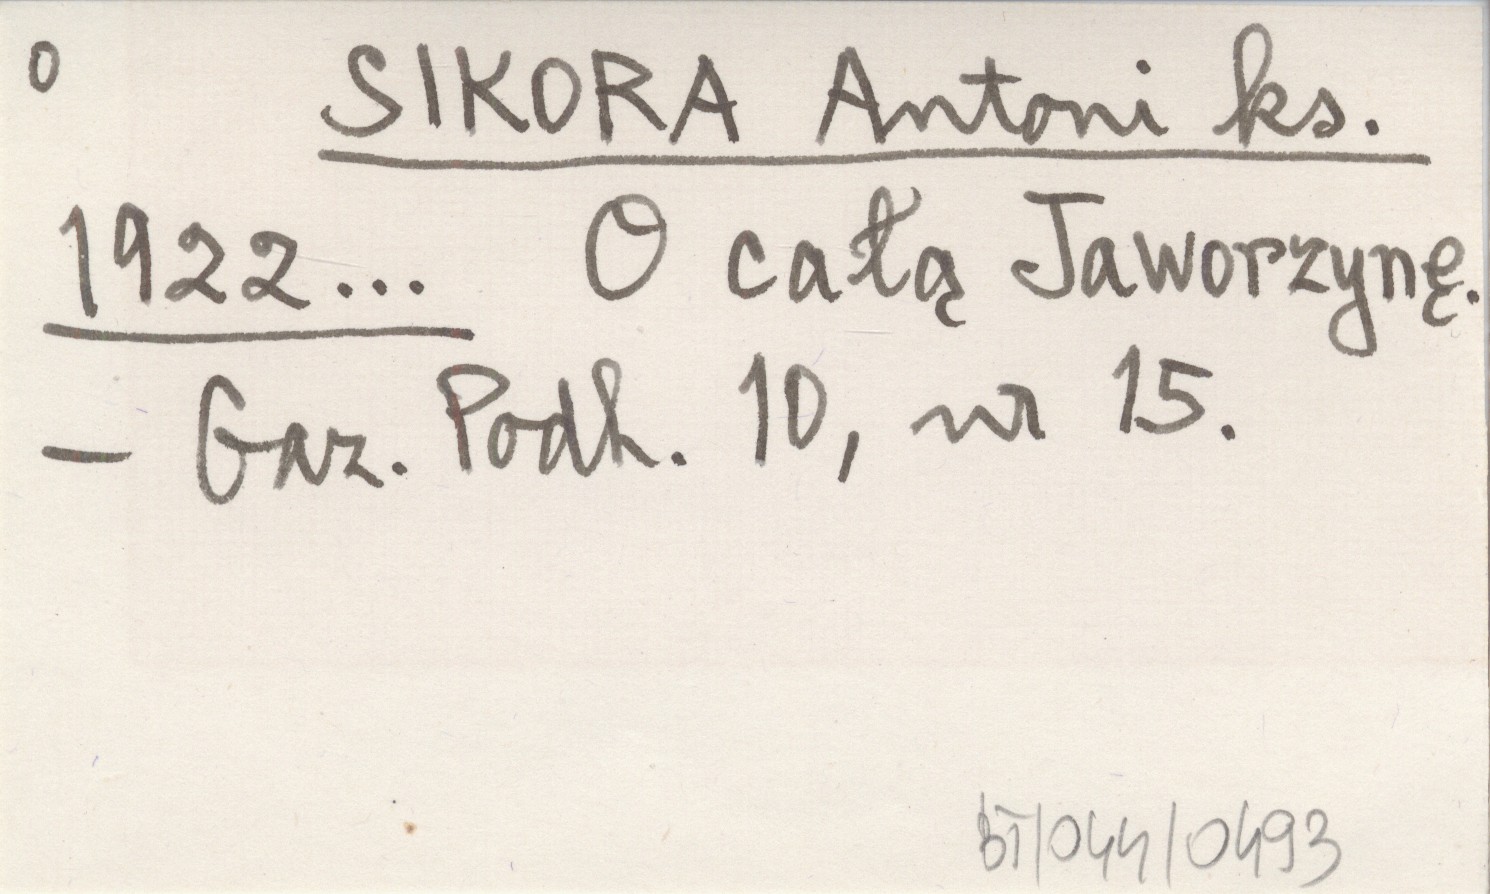 o SIKORA Antoni ks.
1922... O całą Jaworzynę.
— Gaz. Podh. 10, nr 15.
BT/044/0493